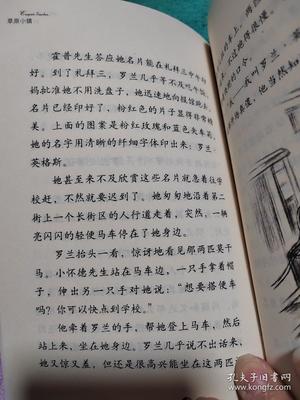 草原小镇
霍普先生答应她名片能在礼拜三中午印
好。到了礼拜三,罗兰几乎等不及吃午饭。
妈批准她不用洗盘子,她迅速地向报馆跑去。
名片已经印好了,粉红色的片子显得非常精
美。上面的图案是粉红玫瑰和蓝色矢车菊,
她的名字用清晰的纤细字体印出来:罗兰·
英格斯。
她甚至来不及欣赏这些名片就急着往学
校赶,不然就要迟到了。她匆匆地沿着第二
街上一个长街区的人行道走着,突然,一辆
亮闪闪的轻便马车停在了她身边。
罗兰抬头一看,惊讶地看见那两匹莫干
马。小怀德先生站在马车边,一只手拿着帽
子,伸出另一只手对她说:“想要搭便车
吗?你可以快点到学校。”
他牵着罗兰的手,帮她登上马车,然后
站上来,坐在她身边。罗兰几乎说不出话来,
她又惊又羞,但还是很高兴能坐在这两匹
孔夫子旧书网